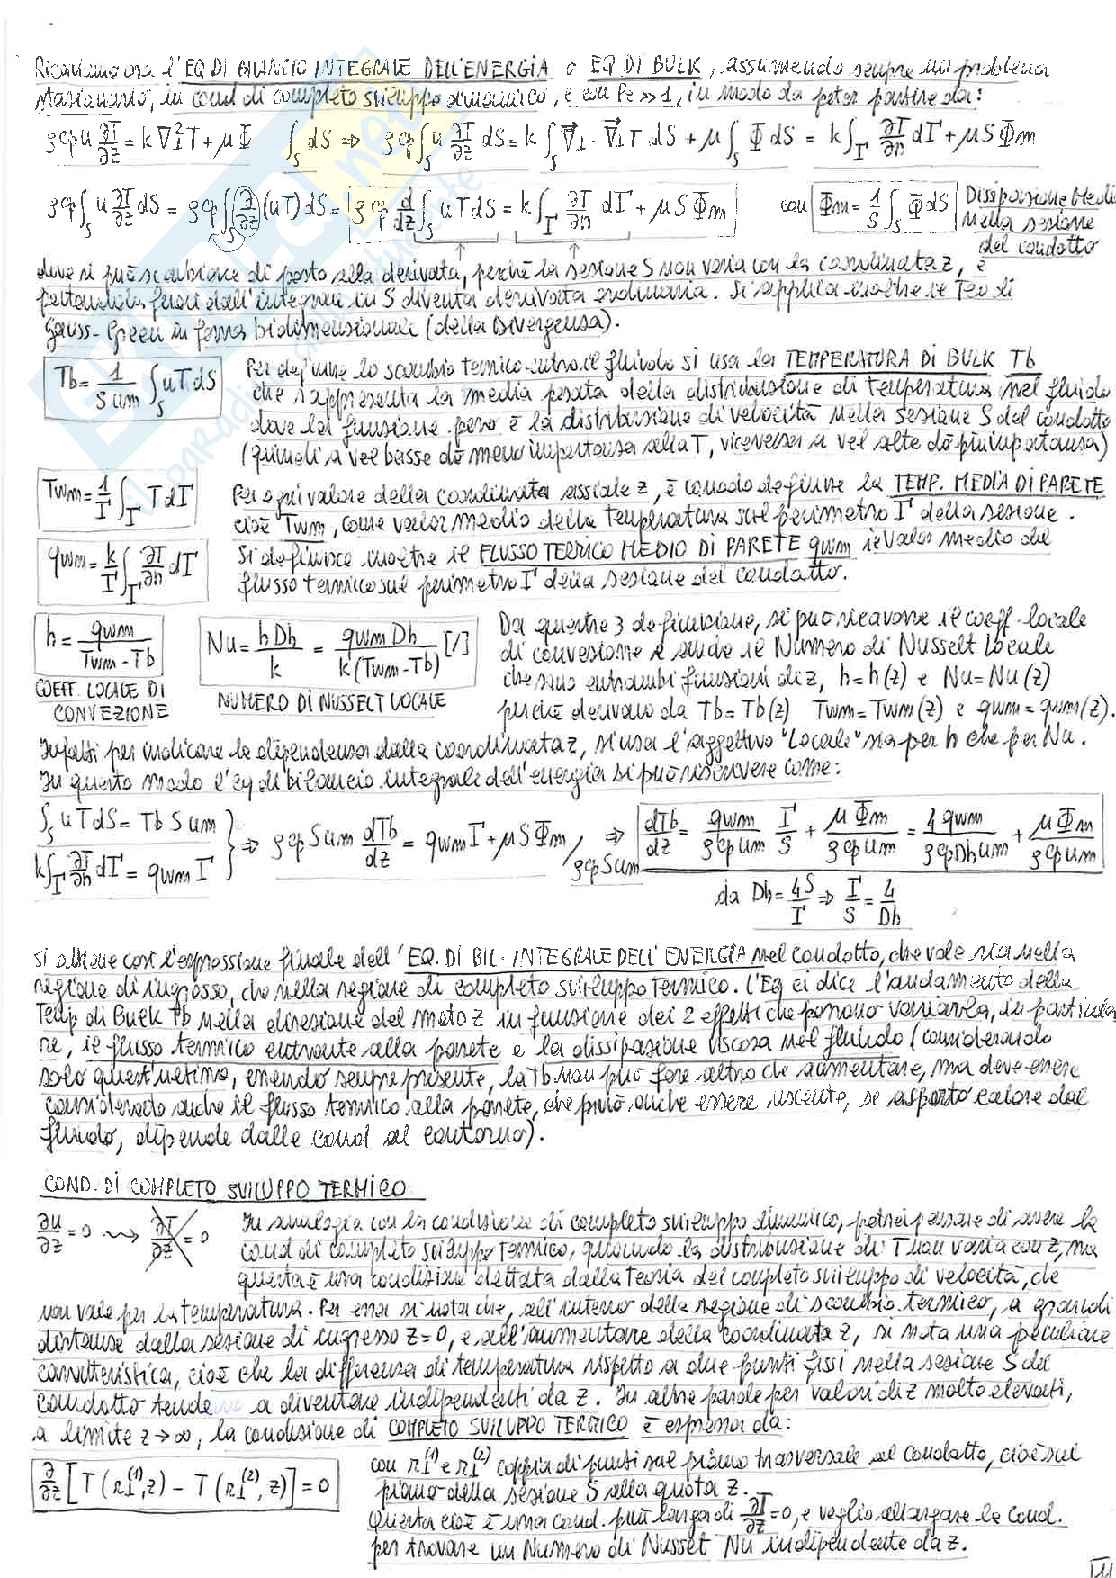 Ricaviamo ora l'EQ DI BILANCIO INTEGRALE DELL'ENERGIA o EQ DI BULK, assumendo sempre un problema
stazionario, in cond di completo sviluppo dinamico, e con Pe>>1, in modo da poter partire da:
ρcp u ∂T/∂z = k∇⊥²T + μΦ ∫_S dS ⇒ ρcp∫_S u ∂T/∂z dS = k∫_S ∇⊥·∇⊥T dS + μ∫_S Φ dS = k∫_Γ ∂T/∂n dΓ + μSΦm
ρcp∫_S u ∂T/∂z dS = ρcp∫_S ∂/∂z (uT) dS = ρcp d/dz ∫_S uT dS = k∫_Γ ∂T/∂n dΓ + μSΦm con Φm = 1/S ∫_S Φ dS Dissipazione Media
nella sezione
del condotto
dove si può scambiare di posto alla derivata, perché la sezione S non varia con la coordinata z, e
portandola fuori dall'integrale in S diventa derivata ordinaria. Si applica inoltre il Teo di
Gauss-Green in forma bidimensionale (della Divergenza).
Tb = 1/(S um) ∫_S uT dS Per definire lo scambio termico entro il fluido si usa la TEMPERATURA DI BULK Tb
che rappresenta la media pesata della distribuzione di temperatura nel fluido
dove la funzione peso è la distribuzione di velocità nella sezione S del condotto
(quindi a vel basse dò meno importanza alla T, viceversa a vel alte dò più importanza)
Twm = 1/Γ ∫_Γ T dΓ Per ogni valore della coordinata assiale z, è comodo definire la TEMP. MEDIA DI PARETE
cioè Twm, come valor medio della temperatura sul perimetro Γ della sezione.
qwm = k/Γ ∫_Γ ∂T/∂n dΓ Si definisce inoltre il FLUSSO TERMICO MEDIO DI PARETE qwm il valor medio del
flusso termico sul perimetro Γ della sezione del condotto.
h = qwm/(Twm - Tb) Nu = hDh/k = qwm Dh/(k(Twm-Tb)) [/] Da queste 3 definizione, si può ricavare il coeff. locale
di convezione e anche il Numero di Nusselt Locale
che sono entrambi funzioni di z, h=h(z) e Nu=Nu(z)
COEFF. LOCALE DI
CONVEZIONE
NUMERO DI NUSSELT LOCALE
perché derivano da Tb=Tb(z) Twm=Twm(z) e qwm=qwm(z).
Infatti per indicare la dipendenza dalla coordinata z, si usa l'aggettivo "Locale" sia per h che per Nu.
In questo modo l'Eq di bilancio integrale dell'energia si può riscrivere come:
∫_S uT dS = Tb S um
k∫_Γ ∂T/∂n dΓ = qwm Γ } ⇒ ρcp S um dTb/dz = qwm Γ + μSΦm / ρcp S um ⇒ dTb/dz = qwm/(ρcp um) Γ/S + μΦm/(ρcp um) = 4qwm/(ρcp Dh um) + μΦm/(ρcp um)
da Dh = 4S/Γ ⇒ Γ/S = 4/Dh
Si ottiene così l'espressione finale dell'EQ. DI BIL. INTEGRALE DELL'ENERGIA nel condotto, che vale sia nella
regione di ingresso, che nella regione di completo sviluppo termico. L'Eq ci dice l'andamento della
Temp di Bulk Tb nella direzione del moto z in funzione dei 2 effetti che possono variarla, in particola
re, il flusso termico entrante alla parete e la dissipazione viscosa nel fluido (considerando
solo quest'ultimo, essendo sempre presente, la Tb non può fare altro che aumentare, ma deve essere
considerato anche il flusso termico alla parete, che può anche essere uscente, se asporto calore dal
fluido, dipende dalle cond al contorno).
COND. DI COMPLETO SVILUPPO TERMICO
∂u/∂z = 0 ⇝ ∂T/∂z = 0 In analogia con la condizione di completo sviluppo dinamico, potrei pensare di avere la
cond di completo sviluppo termico, quando la distribuzione di T non varia con z, ma
questa è una condizione dettata dalla teoria del completo sviluppo di velocità, che
non vale per la temperatura. Per essa si nota che, all'interno della regione di scambio termico, a grandi
distanze dalla sezione di ingresso z=0, e all'aumentare della coordinata z, si nota una peculiare
caratteristica, cioè che la differenza di temperatura rispetto a due punti fissi nella sezione S del
condotto tende a diventare indipendenti da z. In altre parole per valori di z molto elevati,
a limite z→∞, la condizione di COMPLETO SVILUPPO TERMICO è espressa da:
∂/∂z [T(r⊥⁽¹⁾,z) - T(r⊥⁽²⁾,z)] = 0 con r⊥⁽¹⁾ e r⊥⁽²⁾ coppia di punti sul piano trasversale al condotto, cioè sul
piano della sezione S alla quota z.
Questa cioè è una cond. più larga di ∂T/∂z=0, e voglio allargare la cond.
per trovare un Numero di Nusset Nu indipendente da z.